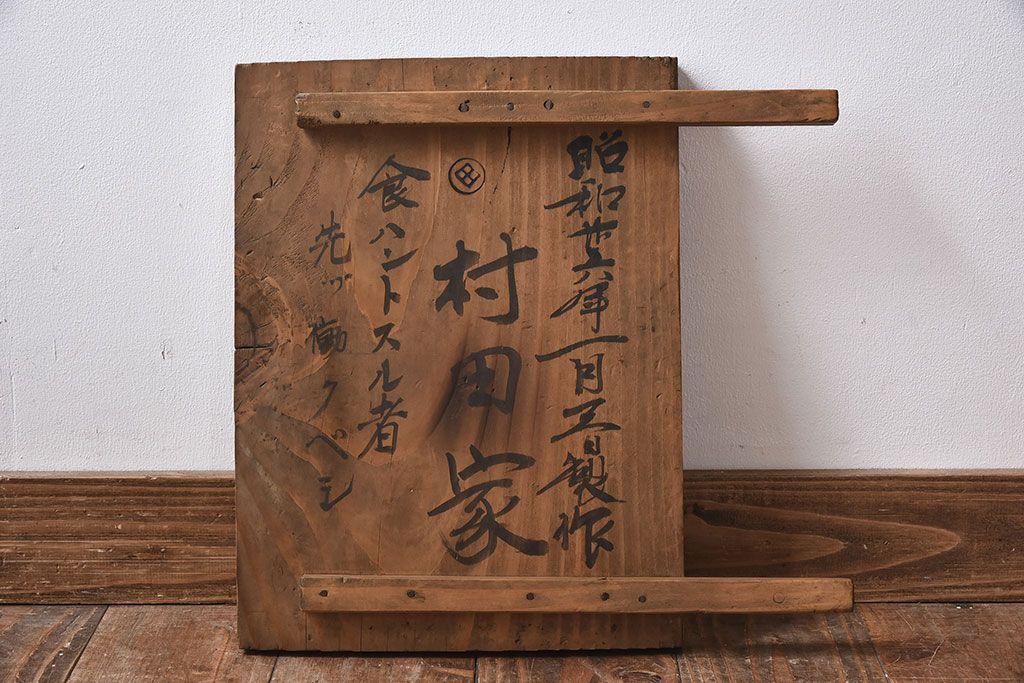 昭和廿六年一月三日製作
村田家
食ハントスル者
先ヅ働クベシ